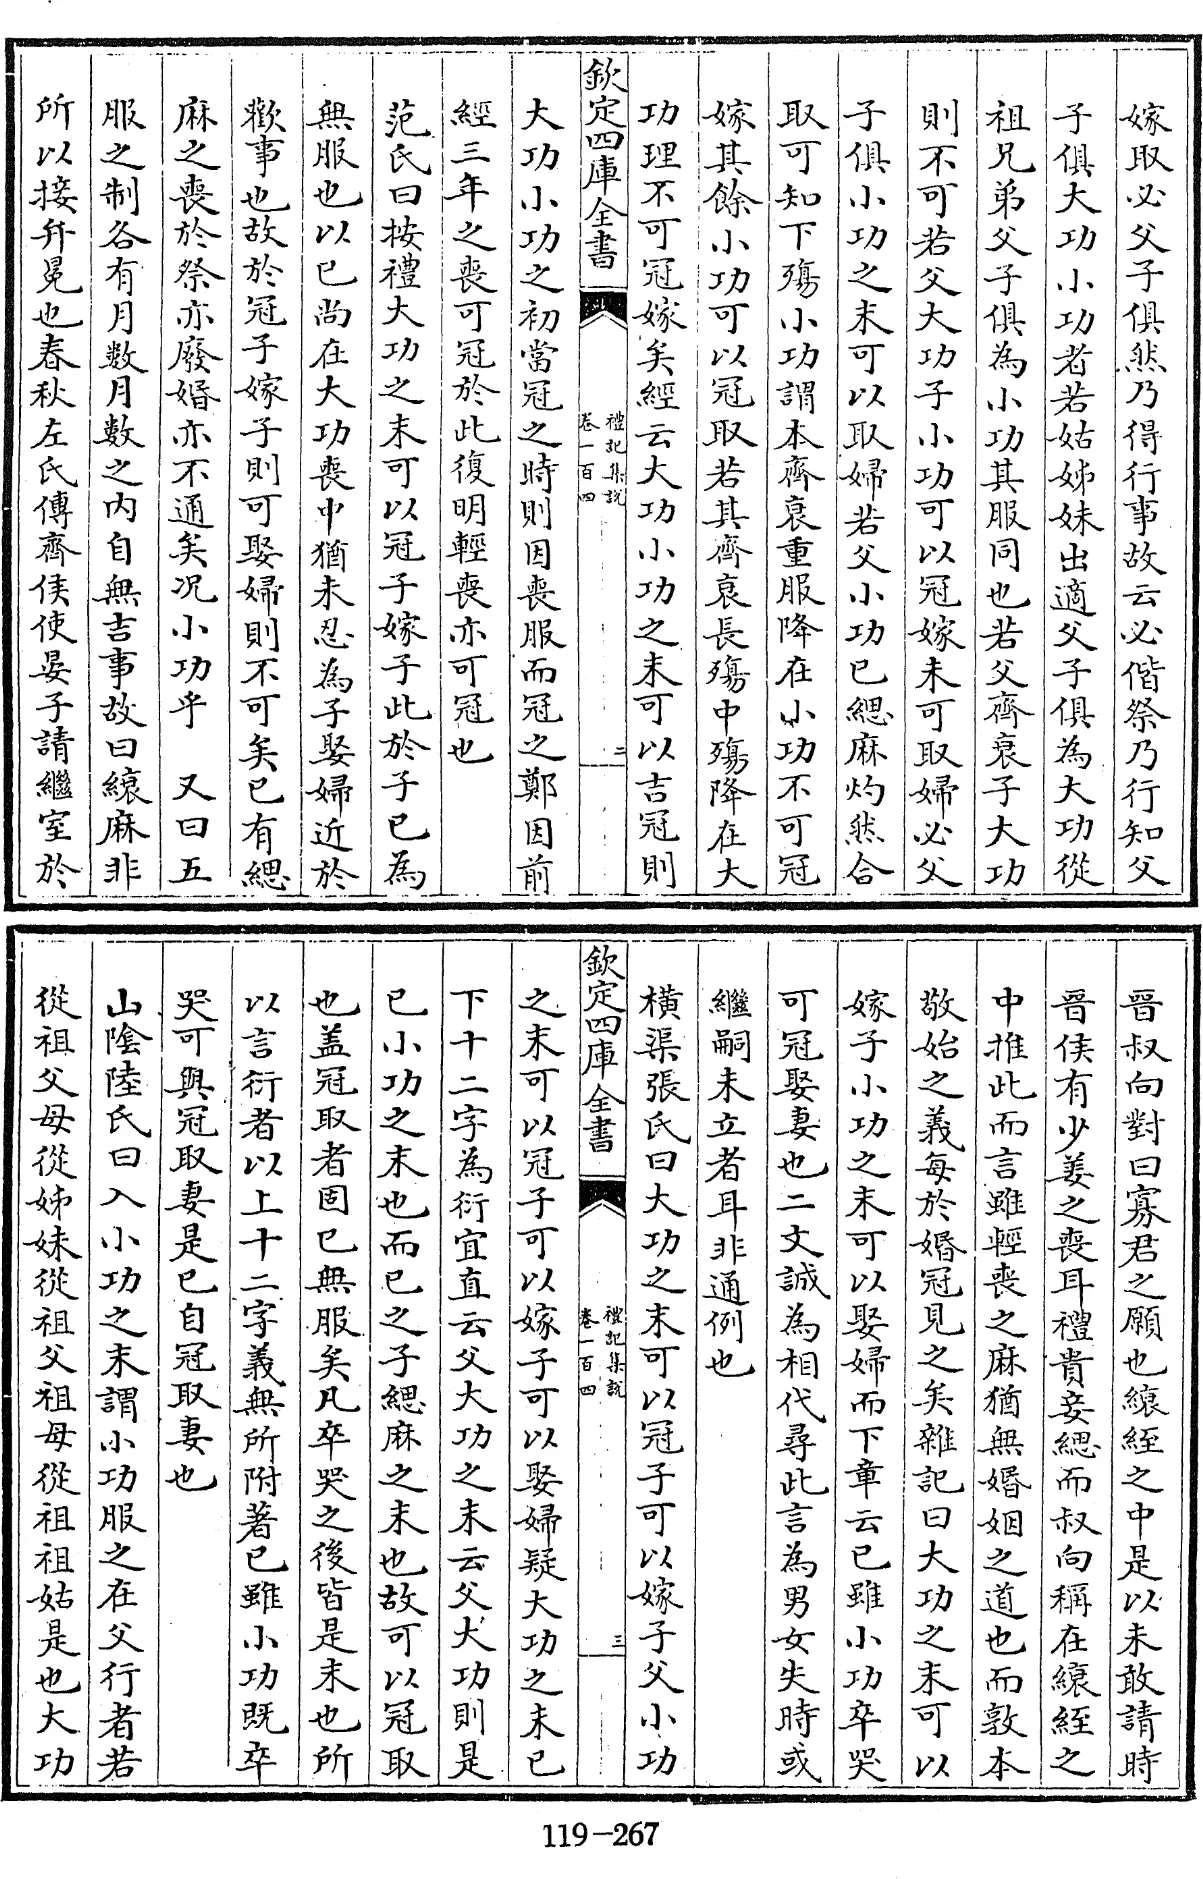 嫁取必父子俱然乃得行事故云必偕祭乃行知父
子俱大功小功者若姑姊妹出適父子俱為大功從
祖兄弟父子俱為小功其服同也若父齊衰子大功
則不可若父大功子小功可以冠嫁未可取婦必父
子俱小功之末可以取婦若父小功已緦麻灼然合
取可知下殤小功謂本齊衰重服降在小功不可冠
嫁其餘小功可以冠取若其齊衰長殤中殤降在大
功理不可冠嫁矣經云大功小功之末可以吉冠則
欽定四庫全書
禮記集說
卷一百四
二
大功小功之初當冠之時則因喪服而冠之鄭因前
經三年之喪可冠於此復明輕喪亦可冠也
范氏曰按禮大功之末可以冠子嫁子此於子已為
無服也以已尚在大功喪中猶未忍為子娶婦近於
歡事也故於冠子嫁子則可娶婦則不可矣已有緦
麻之喪於祭亦廢婚亦不通矣况小功乎 又曰五
服之制各有月數月數之内自無吉事故曰縗麻非
所以接弁冕也春秋左氏傳齊侯使晏子請繼室於
晉叔向對曰寡君之願也縗絰之中是以未敢請時
晉侯有少姜之喪耳禮貴妾緦而叔向稱在縗絰之
中推此而言雖輕喪之麻猶無婚姻之道也而敦本
敬始之義每於婚冠見之矣雜記曰大功之末可以
嫁子小功之末可以娶婦而下章云已雖小功卒哭
可冠娶妻也二文誠為相代尋此言為男女失時或
繼嗣未立者耳非通例也
橫渠張氏曰大功之末可以冠子可以嫁子父小功
欽定四庫全書
禮記集說
卷一百四
三
之末可以冠子可以嫁子可以娶婦疑大功之末已
下十二字為衍宜直云父大功之末云父大功則是
已小功之末也而已之子緦麻之末也故可以冠取
也盖冠取者固已無服矣凡卒哭之後皆是末也所
以言衍者以上十二字義無所附著已雖小功既卒
哭可與冠取妻是已自冠取妻也
山陰陸氏曰入小功之末謂小功服之在父行者若
從祖父母從姊妹從祖父祖母從祖祖姑是也大功
119-267